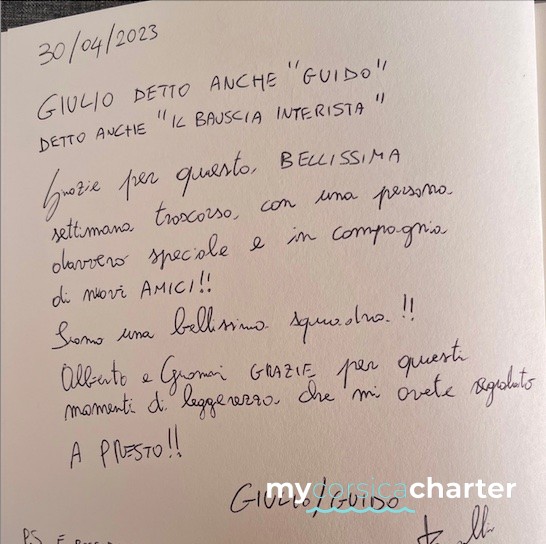 30/04/2023
GIULIO DETTO ANCHE "GUIDO"
DETTO ANCHE "IL BAUSCIA INTERISTA"
Grazie per questa BELLISSIMA
settimana trascorsa, con una persona
davvero speciale e in compagnia
di nuovi AMICI!!
Siamo una bellissima squadra!!
Alberto e GRAZIE per questi
momenti di leggerezza che mi avete regalato
A PRESTO!!
GIULIO/GUIDO
mycorsicacharter
PS